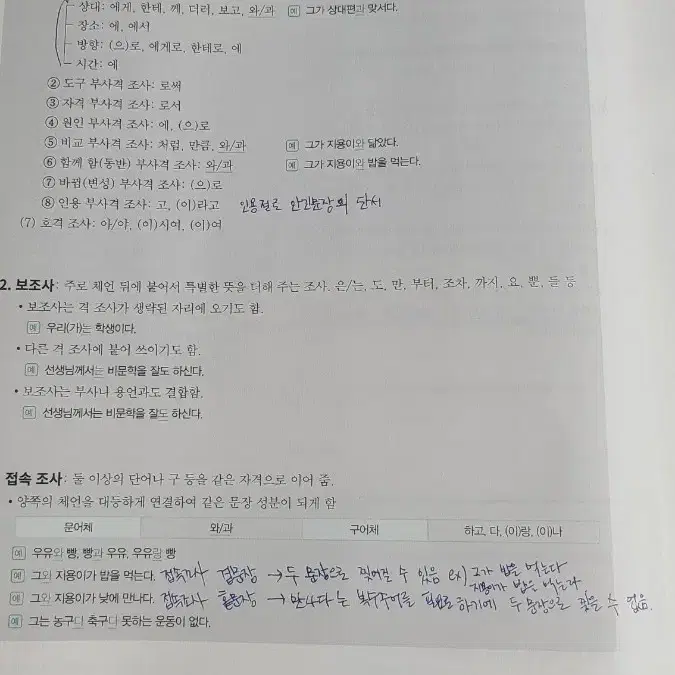 상대: 에게, 한테, 께, 더러, 보고, 와/과 예 그가 상대편과 맞서다.
장소: 에, 에서
방향: (으)로, 에게로, 한테로, 에
시간: 에
② 도구 부사격 조사: 로써
③ 자격 부사격 조사: 로서
④ 원인 부사격 조사: 에, (으)로
⑤ 비교 부사격 조사: 처럼, 만큼, 와/과 예 그가 지용이와 닮았다.
⑥ 함께 함(동반) 부사격 조사: 와/과 예 그가 지용이와 밥을 먹는다.
⑦ 바뀜(변성) 부사격 조사: (으)로
⑧ 인용 부사격 조사: 고, (이)라고 인용절로 안긴문장의 단서
(7) 호격 조사: 아/야, (이)시여, (이)여
2. 보조사: 주로 체언 뒤에 붙어서 특별한 뜻을 더해 주는 조사. 은/는, 도, 만, 부터, 조차, 까지, 요, 뿐, 들 등
• 보조사는 격 조사가 생략된 자리에 오기도 함.
예 우리(가)는 학생이다.
• 다른 격 조사에 붙어 쓰이기도 함.
예 선생님께서는 비문학을 잘도 하신다.
• 보조사는 부사나 용언과도 결합함.
예 선생님께서는 비문학을 잘도 하신다.
접속 조사: 둘 이상의 단어나 구 등을 같은 자격으로 이어 줌.
• 양쪽의 체언을 대등하게 연결하여 같은 문장 성분이 되게 함
문어체 와/과 구어체 하고, 다, (이)랑, (이)나
예 우유와 빵, 빵과 우유, 우유랑 빵
예 그와 지용이가 밥을 먹는다. 접속조사 겹문장 → 두 문장으로 찢어질 수 있음 ex) 그가 밥을 먹는다
지용이가 밥을 먹는다
예 그와 지용이가 낮에 만나다. 접속조사 홑문장 → 만나다는 복수주어를 필요로 하기에 두 문장으로 찢을 수 없음.
예 그는 농구다 축구다 못하는 운동이 없다.